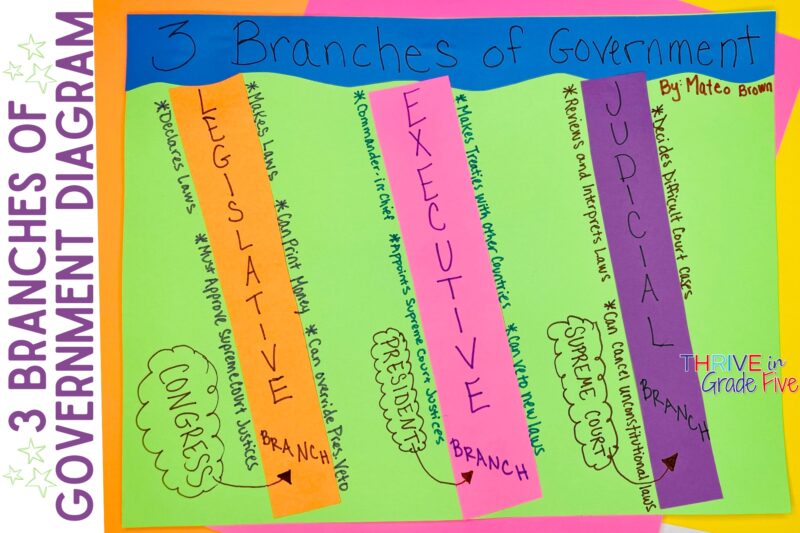 3 BRANCHES OF
GOVERNMENT DIAGRAM
3 Branches of Government
By: Mateo Brown
LEGISLATIVE
BRANCH
*Declares Laws
*Must Approve Supreme Court Justices
*Makes Laws
*Can Print Money
*Can override Pres. Veto
CONGRESS
EXECUTIVE
BRANCH
*Commander-in Chief
*Appoints Supreme Court Justices
*Makes Treaties with other Countries
*Can Veto new laws
PRESIDENT
JUDICIAL
BRANCH
*Reviews and Interprets Laws
*Can cancel unconstitutional laws
*Decides Difficult Court Cases
SUPREME COURT
THRIVE in
Grade Five